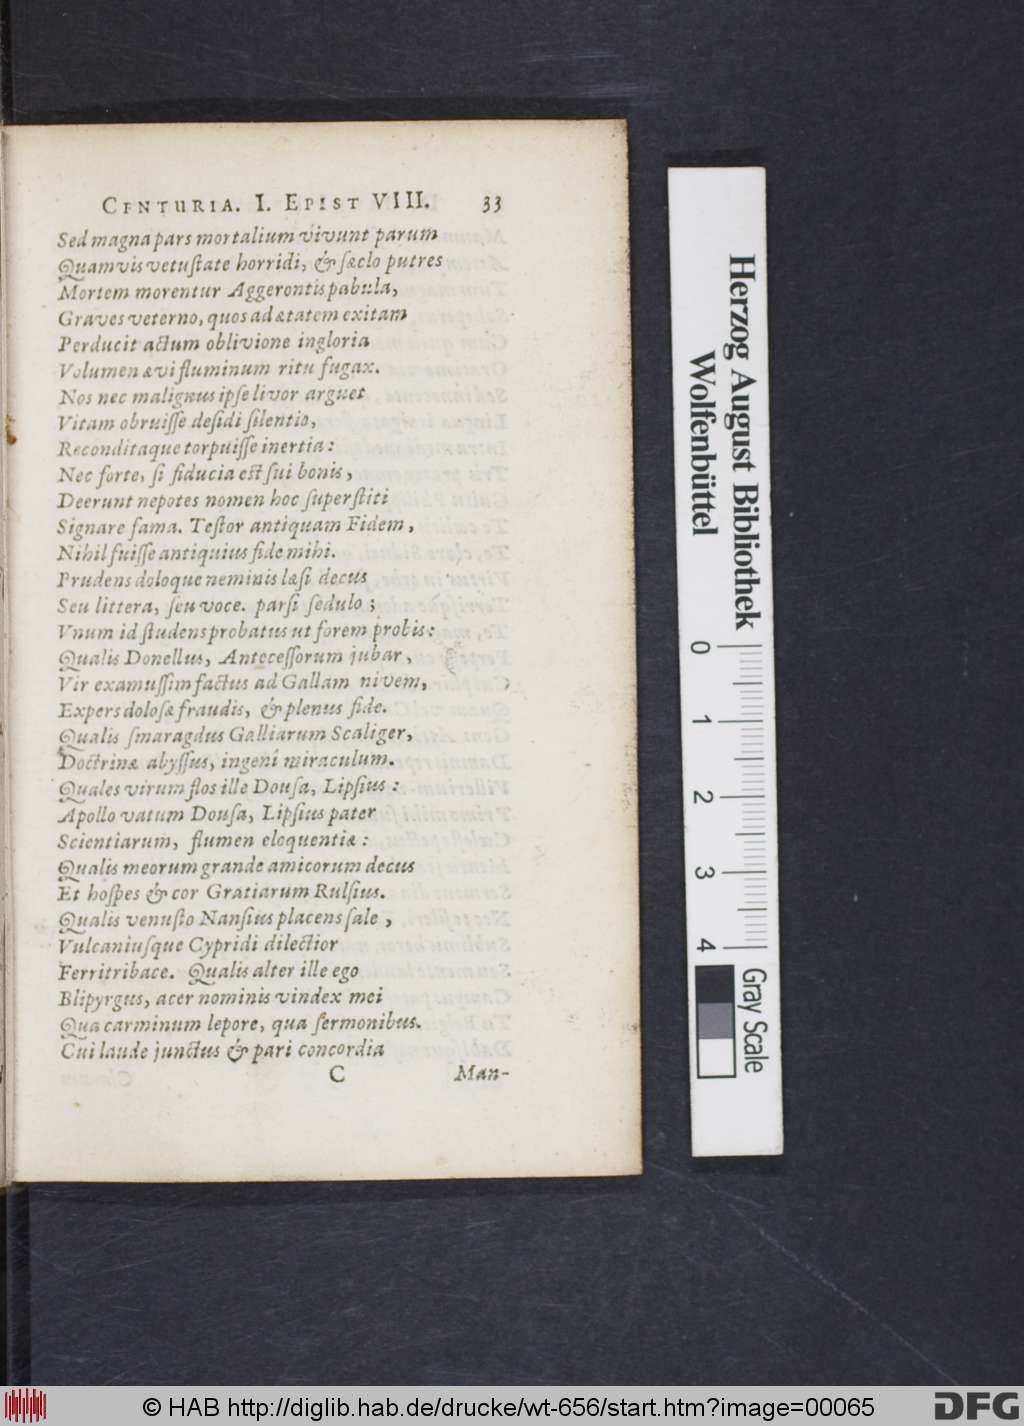 CENTURIA. I. EPIST VIII. 33
Sed magna pars mortalium vivunt parum
Quamvis vetuſtate horridi, & ſæclo putres
Mortem morentur Aggerontis pabula,
Graves veterno, quos ad ætatem exitam
Perducit actum oblivione ingloria
Volumen ævi fluminum ritu fugax.
Nos nec malignus ipſe livor arguet
Vitam obruiſſe deſidi ſilentio,
Reconditaque torpuiſſe inertia:
Nec forte, ſi fiducia eſt ſui bonis,
Deerunt nepotes nomen hoc ſuperſtiti
Signare fama. Teſtor antiquam Fidem,
Nihil fuiſſe antiquius fide mihi.
Prudens doloque neminis læſi decus
Seu littera, ſeu voce. parſi ſedulo;
Vnum id ſtudens probatus ut forem probis:
Qualis Donellus, Anteceſſorum jubar,
Vir examuſſim factus ad Gallam nivem,
Expers doloſæ fraudis, & plenus fide.
Qualis ſmaragdus Galliarum Scaliger,
Doctrinæ abyſſus, ingenî miraculum.
Quales virum flos ille Douſa, Lipſius:
Apollo vatum Douſa, Lipſius pater
Scientiarum, flumen eloquentiæ:
Qualis meorum grande amicorum decus
Et hoſpes & cor Gratiarum Rulſius.
Qualis venuſto Nanſius placens ſale,
Vulcaniuſque Cypridi dilectior
Ferritribace. Qualis alter ille ego
Blipyrgus, acer nominis vindex mei
Qua carminum lepore, qua ſermonibus.
Cui laude junctus & pari concordia
C Man-
Herzog August Bibliothek
Wolfenbüttel
0 1 2 3 4
Gray Scale
© HAB http://diglib.hab.de/drucke/wt-656/start.htm?image=00065
DFG